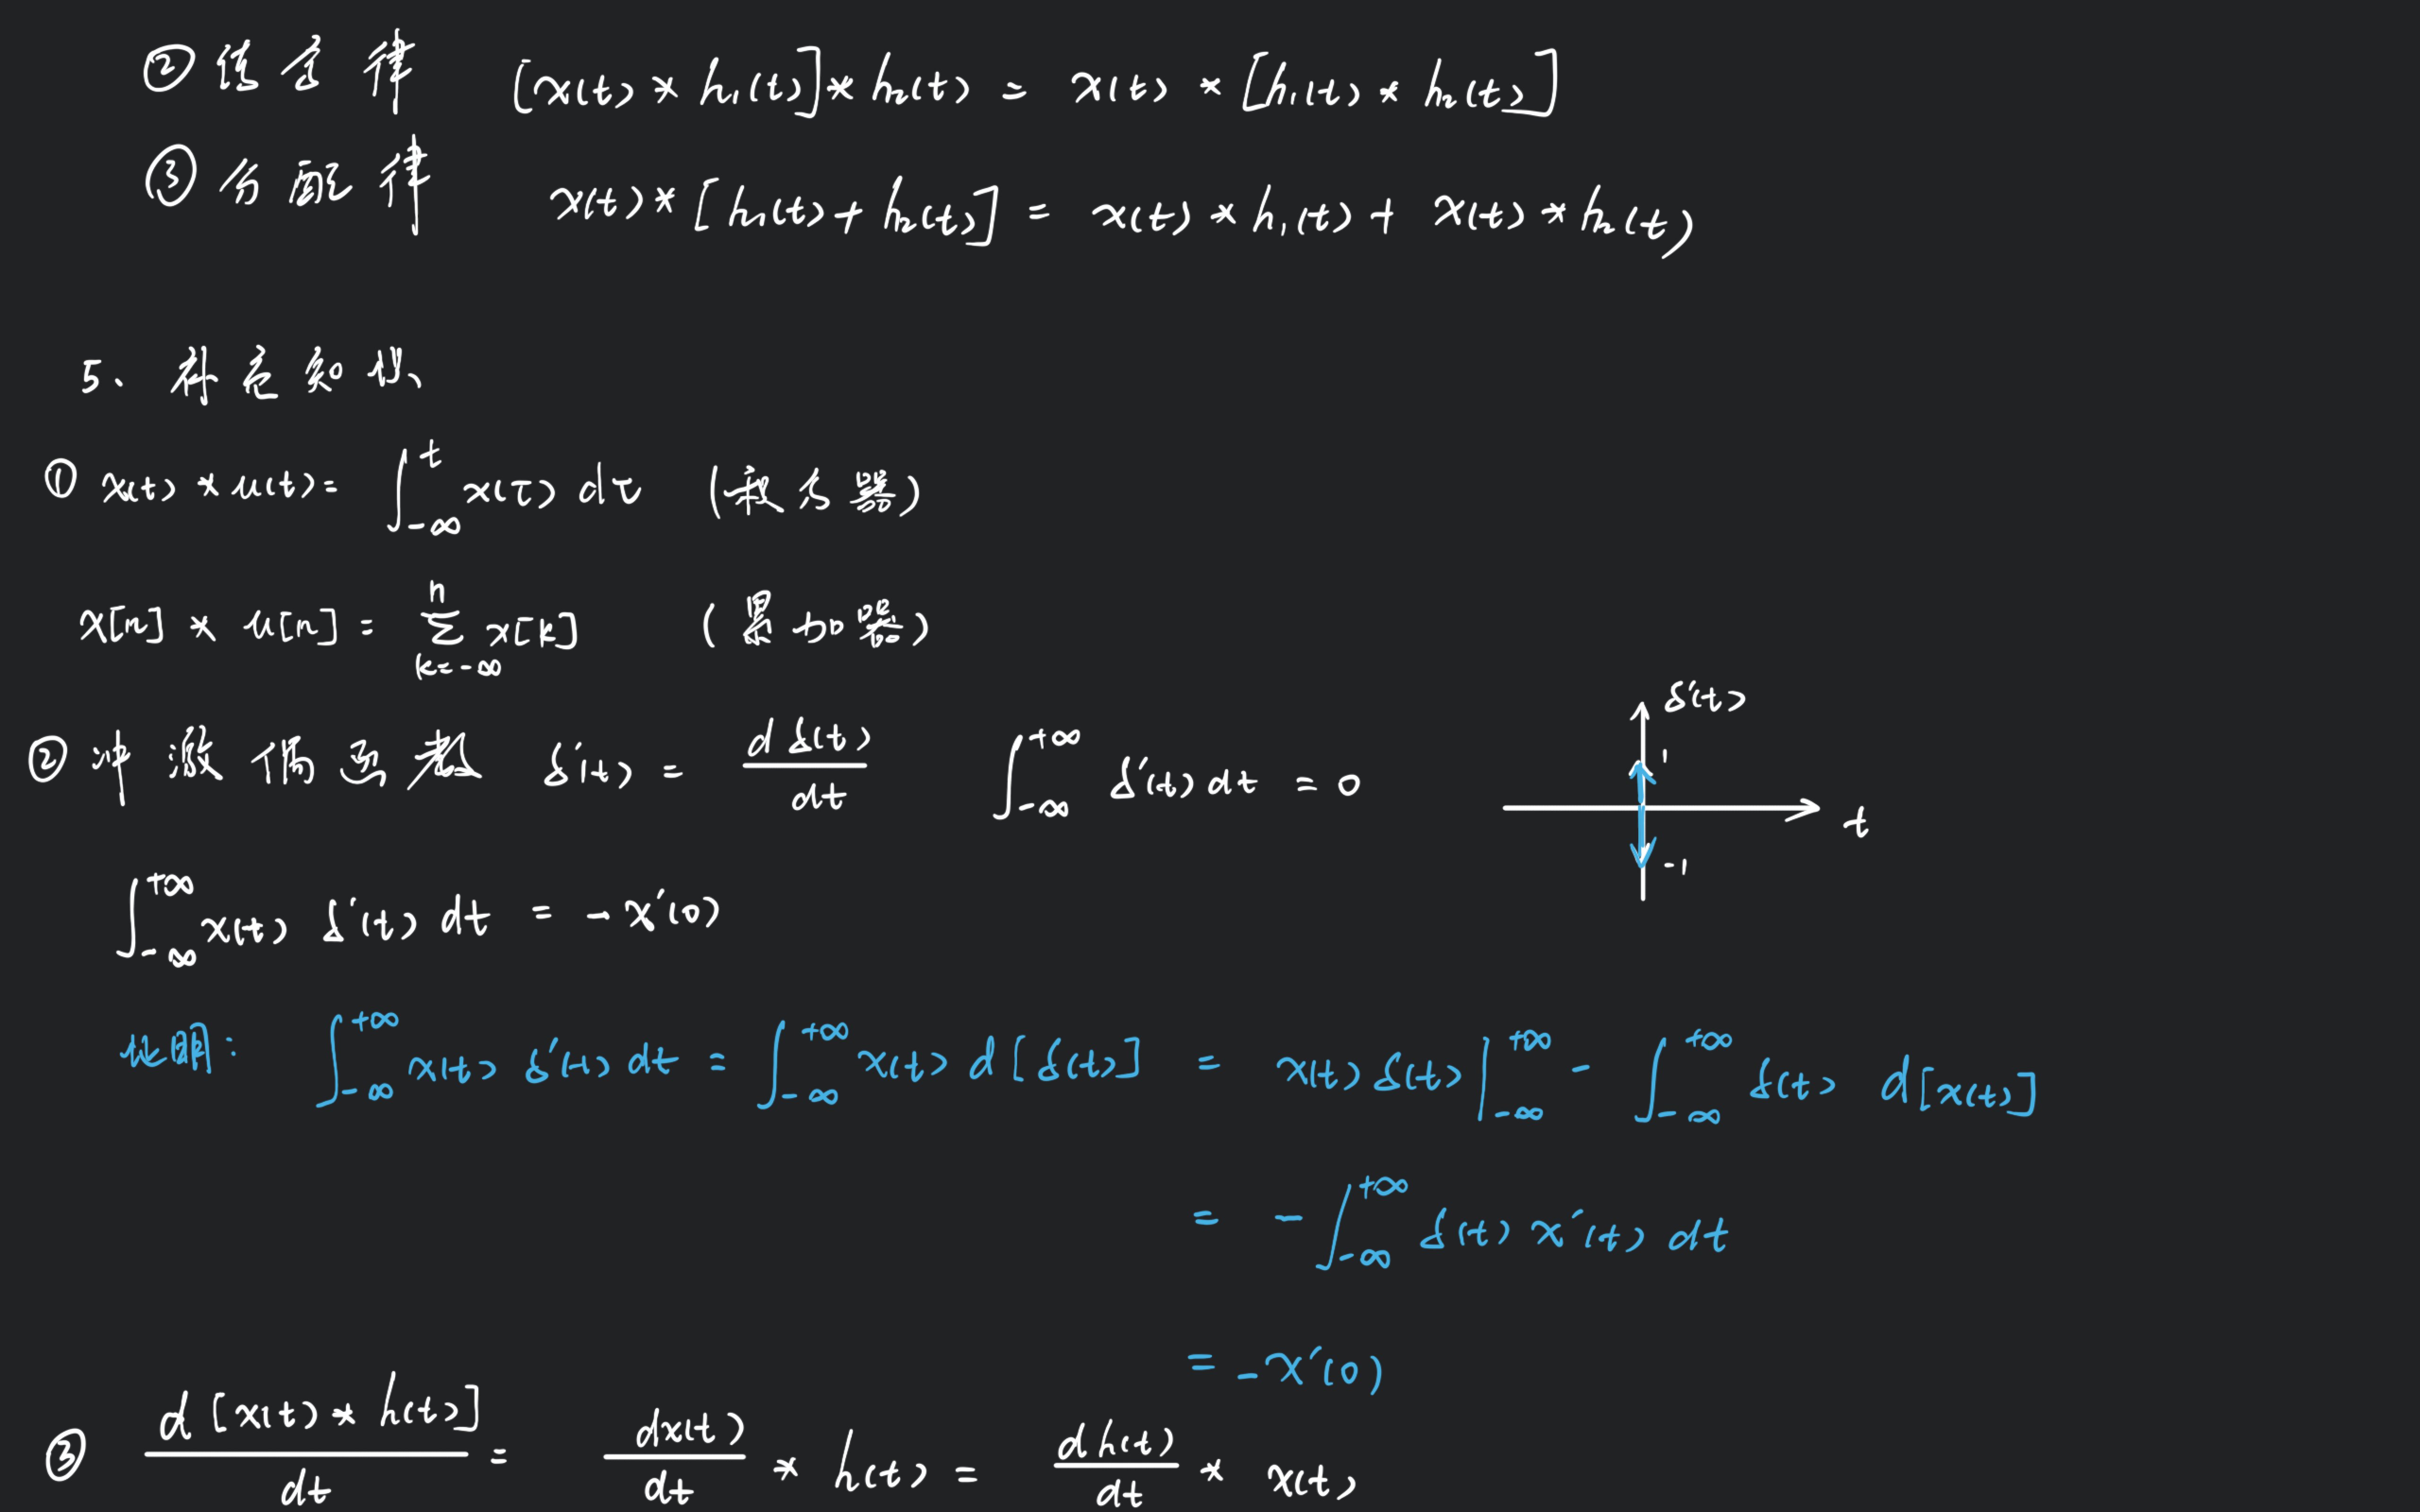 ②结合律 [x(t) * h₁(t)] * h₂(t) = x(t) * [h₁(t) * h₂(t)]
③分配律 x(t) * [h₁(t) + h₂(t)] = x(t) * h₁(t) + x(t) * h₂(t)
5、补充知识
① x(t) * u(t) = ∫_{-∞}^{t} x(τ) dτ (积分器)
x[n] * u[n] = Σ_{k=-∞}^{n} x[k] (累加器)
②冲激偶函数 δ'(t) = dδ(t)/dt ∫_{-∞}^{+∞} δ'(t) dt = 0
δ'(t)
1
t
-1
∫_{-∞}^{+∞} x(t) δ'(t) dt = -x'(0)
证明: ∫_{-∞}^{+∞} x(t) δ'(t) dt = ∫_{-∞}^{+∞} x(t) d[δ(t)] = x(t) δ(t) |_{-∞}^{+∞} - ∫_{-∞}^{+∞} δ(t) d[x(t)]
= -∫_{-∞}^{+∞} δ(t) x'(t) dt
= -x'(0)
③ d[x(t) * h(t)]/dt = dx(t)/dt * h(t) = dh(t)/dt * x(t)